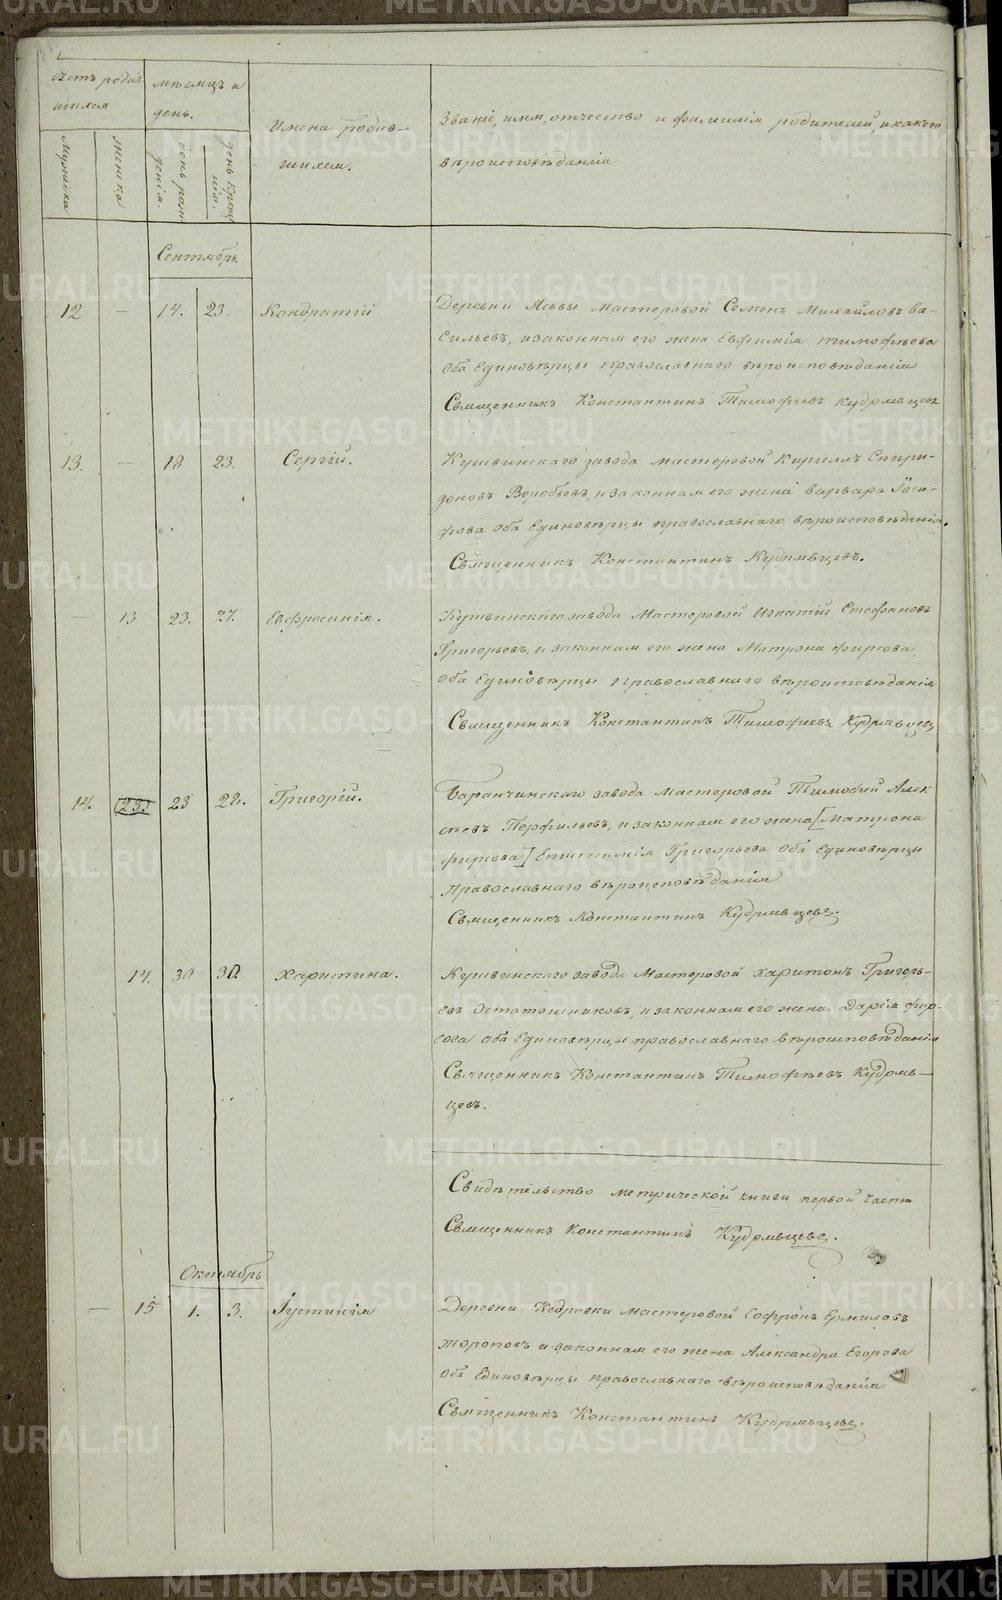 Счетъ родив-
шихся
Мѣсяцъ и
день.
Имена родив-
шихся.
Званіе, имя, отчество и фамилія родителей, и какого
вѣроисповѣданія
Мужска
Женска
день рож
денія.
день креще
нія.
Сентябрь.
12 — 14. 23. Кондратій
Деревни Ясьвы Мастеровой Семенъ Михайловъ Ва-
сильевъ, и законная его жена Евфимія Тимофѣева
Оба Единовѣрцы православнаго вѣроисповѣданія
Священникъ Константинъ Тимофеевъ Кудрявцевъ
13. — 18 23. Сергій.
Кушвинскаго завода мастеровой Кириллъ Спири-
доновъ Воробьевъ, и законная его жена Варвара Іоси-
фова Оба Единовѣрцы православнаго вѣроисповѣданія.
Священникъ Константинъ Кудрявцевъ.
— 13 23. 27. Евфросинія.
Кушвинскаго завода Мастеровой Игнатій Стефановъ
Григорьевъ, и законная его жена Матрона Фирсова
Оба Единовѣрцы Православнаго вѣроисповѣданія
Священникъ Константинъ Тимофеевъ Кудрявцевъ
14. 23 28. Григорій.
Баранчинскаго завода Мастеровой Тимофей Алек
сѣевъ Перфильевъ, и законная его жена [Матрона
Фирсова] Григорьева Оба Единовѣрцы
Православнаго вѣроисповѣданія
Священникъ Константинъ Кудрявцевъ.
14. 30 30. Харитина.
Кушвинскаго завода Мастеровой Харитонъ Григорь-
евъ Остатошниковъ, и законная его жена Дарія Фир-
сова Оба Единовѣрцы православнаго вѣроисповѣданія
Священникъ Константинъ Тимофѣевъ Кудряв-
цевъ.
Свидѣтельство метрической книги первой части
Священникъ Константинъ Кудрявцевъ.
Октябрь
— 15 1. 3. Іустинія
Деревни Кедровки Мастеровой Софронъ Ермиловъ
Тороповъ и законная его жена Александра Егорова
Оба Единовѣрцы православнаго вѣроисповѣданія
Священникъ Константинъ Кудрявцевъ.
METRIKI.GASO-URAL.RU